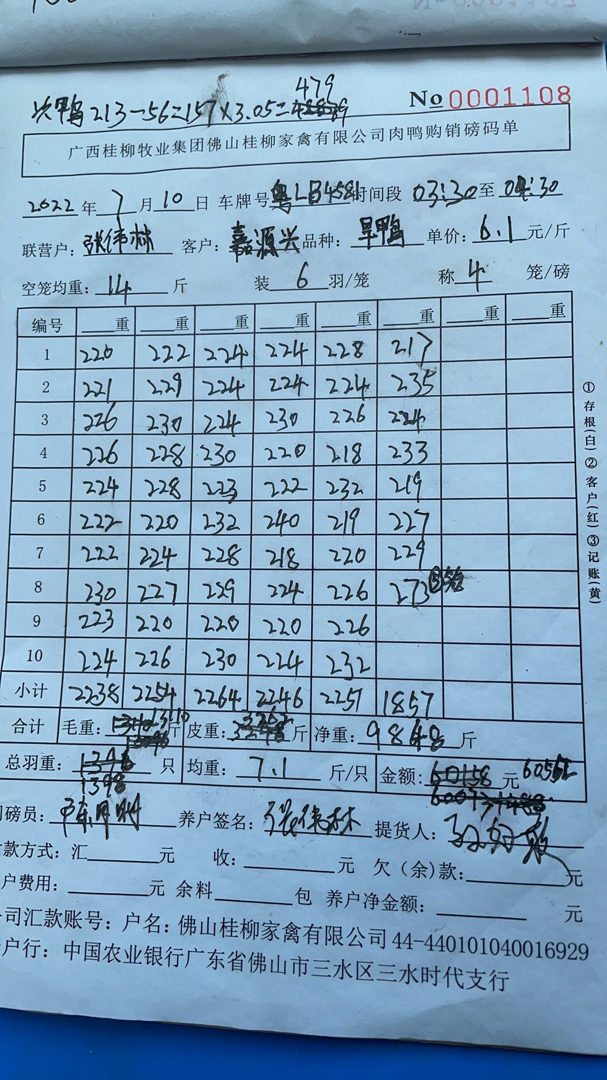 479
鸭213-56=157×3.05=
No 0001108
广西桂柳牧业集团佛山桂柳家禽有限公司肉鸭购销磅码单
2022年7月10日 车牌号粤LB4581时间段03:30至04:30
联营户:张伟林 客户:嘉源兴 品种:旱鸭 单价:6.1元/斤
空笼均重:14斤 装6羽/笼 称4笼/磅
编号 重 重 重 重 重 重 重 重
1 220 222 224 224 228 217
2 221 229 224 224 224 235
3 226 230 224 230 226 224
4 226 228 230 220 218 233
5 224 228 223 222 232 219
6 222 220 232 240 219 227
7 222 224 228 218 220 229
8 230 227 229 224 226 273
9 223 220 220 220 226
10 224 226 230 224 232
小计 2238 2254 2264 2246 2251 1857
合计 毛重:13110斤 皮重:3262斤 净重:9848斤
总羽重:1398只 均重:7.1斤/只 金额:元
磅员: 养户签名:张伟林 提货人:
款方式:汇元 收:元 欠(余)款:元
户费用:元 余料包 养户净金额:元
司汇款账号:户名:佛山桂柳家禽有限公司44-440101040016929
户行:中国农业银行广东省佛山市三水区三水时代支行
①存根(白)②客户(红)③记账(黄)